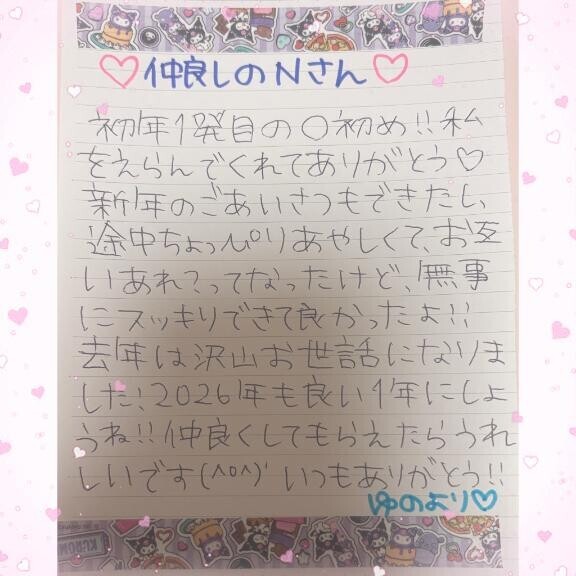 ♡仲良しのNさん♡
初年1発目の〇初め!!私
をえらんでくれてありがとう♡
新年のごあいさつもできたし、
途中ちょっぴりあやしくて、お互
いあれ?ってなったけど、無事
にスッキリできて良かったよ!!
去年は沢山お世話になりま
した!、2026年も良い1年にしよ
うね!!仲良くしてもらえたらうれ
しいです(^o^)いつもありがとう!!
ゆのより♡
KUROMI